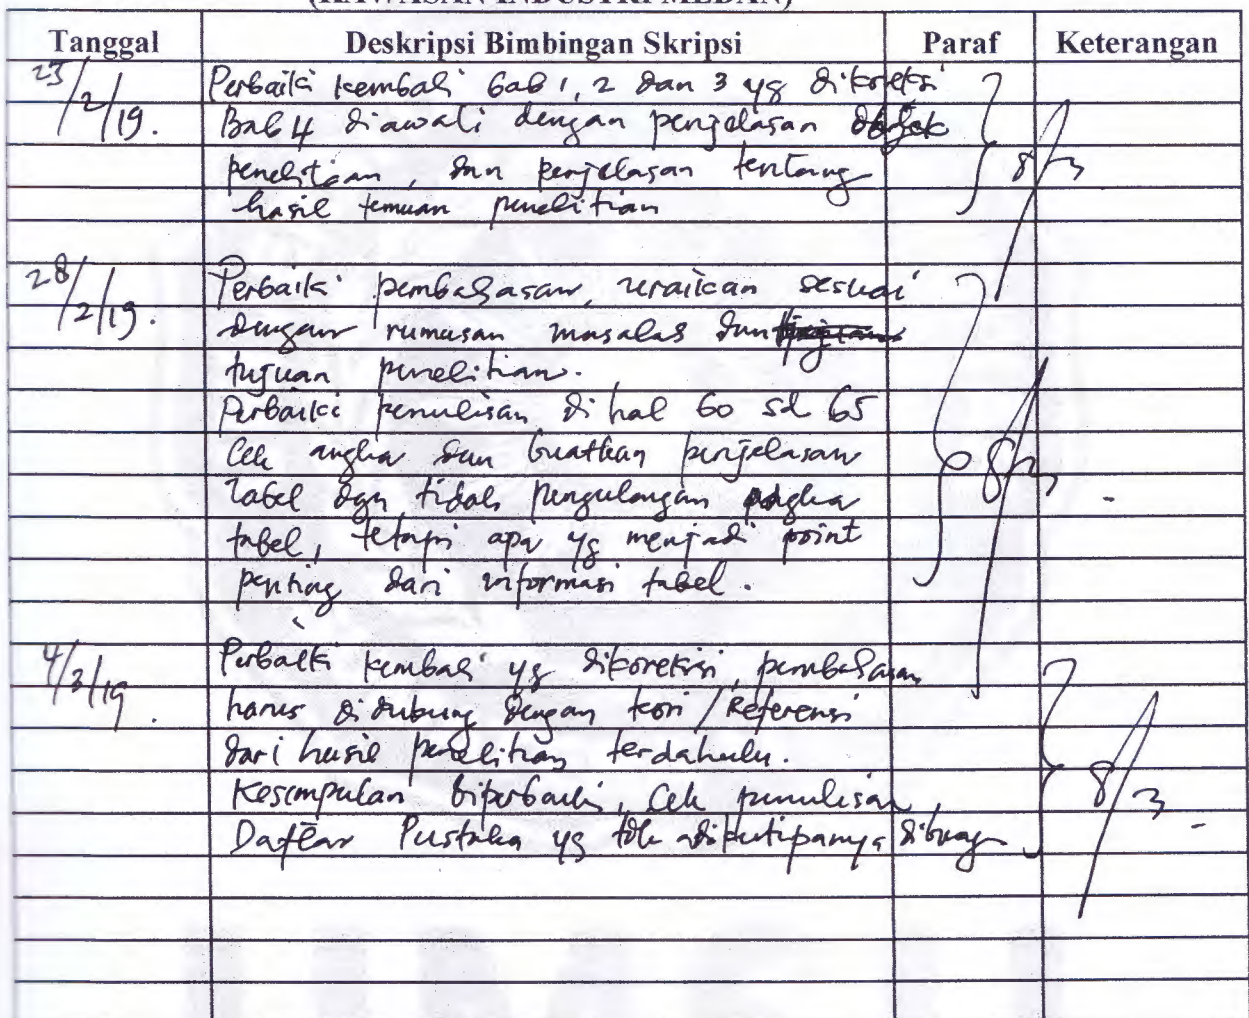 (KAWASAN INDUSTRI MEDAN)
Tanggal Deskripsi Bimbingan Skripsi Paraf Keterangan
23/2/19. Perbaiki kembali bab 1, 2 dan 3 yg dikoreksi
Bab 4 diawali dengan penjelasan objek
penelitian, dan penjelasan tentang
hasil temuan penelitian
28/2/19. Perbaiki pembahasan, uraikan sesuai
dengan rumusan masalah dan
tujuan penelitian.
Perbaiki penulisan di hal 60 sd 65
Cek angka dan buatkan penjelasan
tabel dgn tidak pengulangan angka
tabel, tetapi apa yg menjadi point
penting dari informasi tabel.
4/3/19. Perbaiki kembali yg dikoreksi, pembahasan
harus dihubung dengan teori/Referensi
dari hasil penelitian terdahulu.
Kesimpulan diperbaiki, Cek penulisan,
Daftar Pustaka yg tdk ada kutipannya dibuang